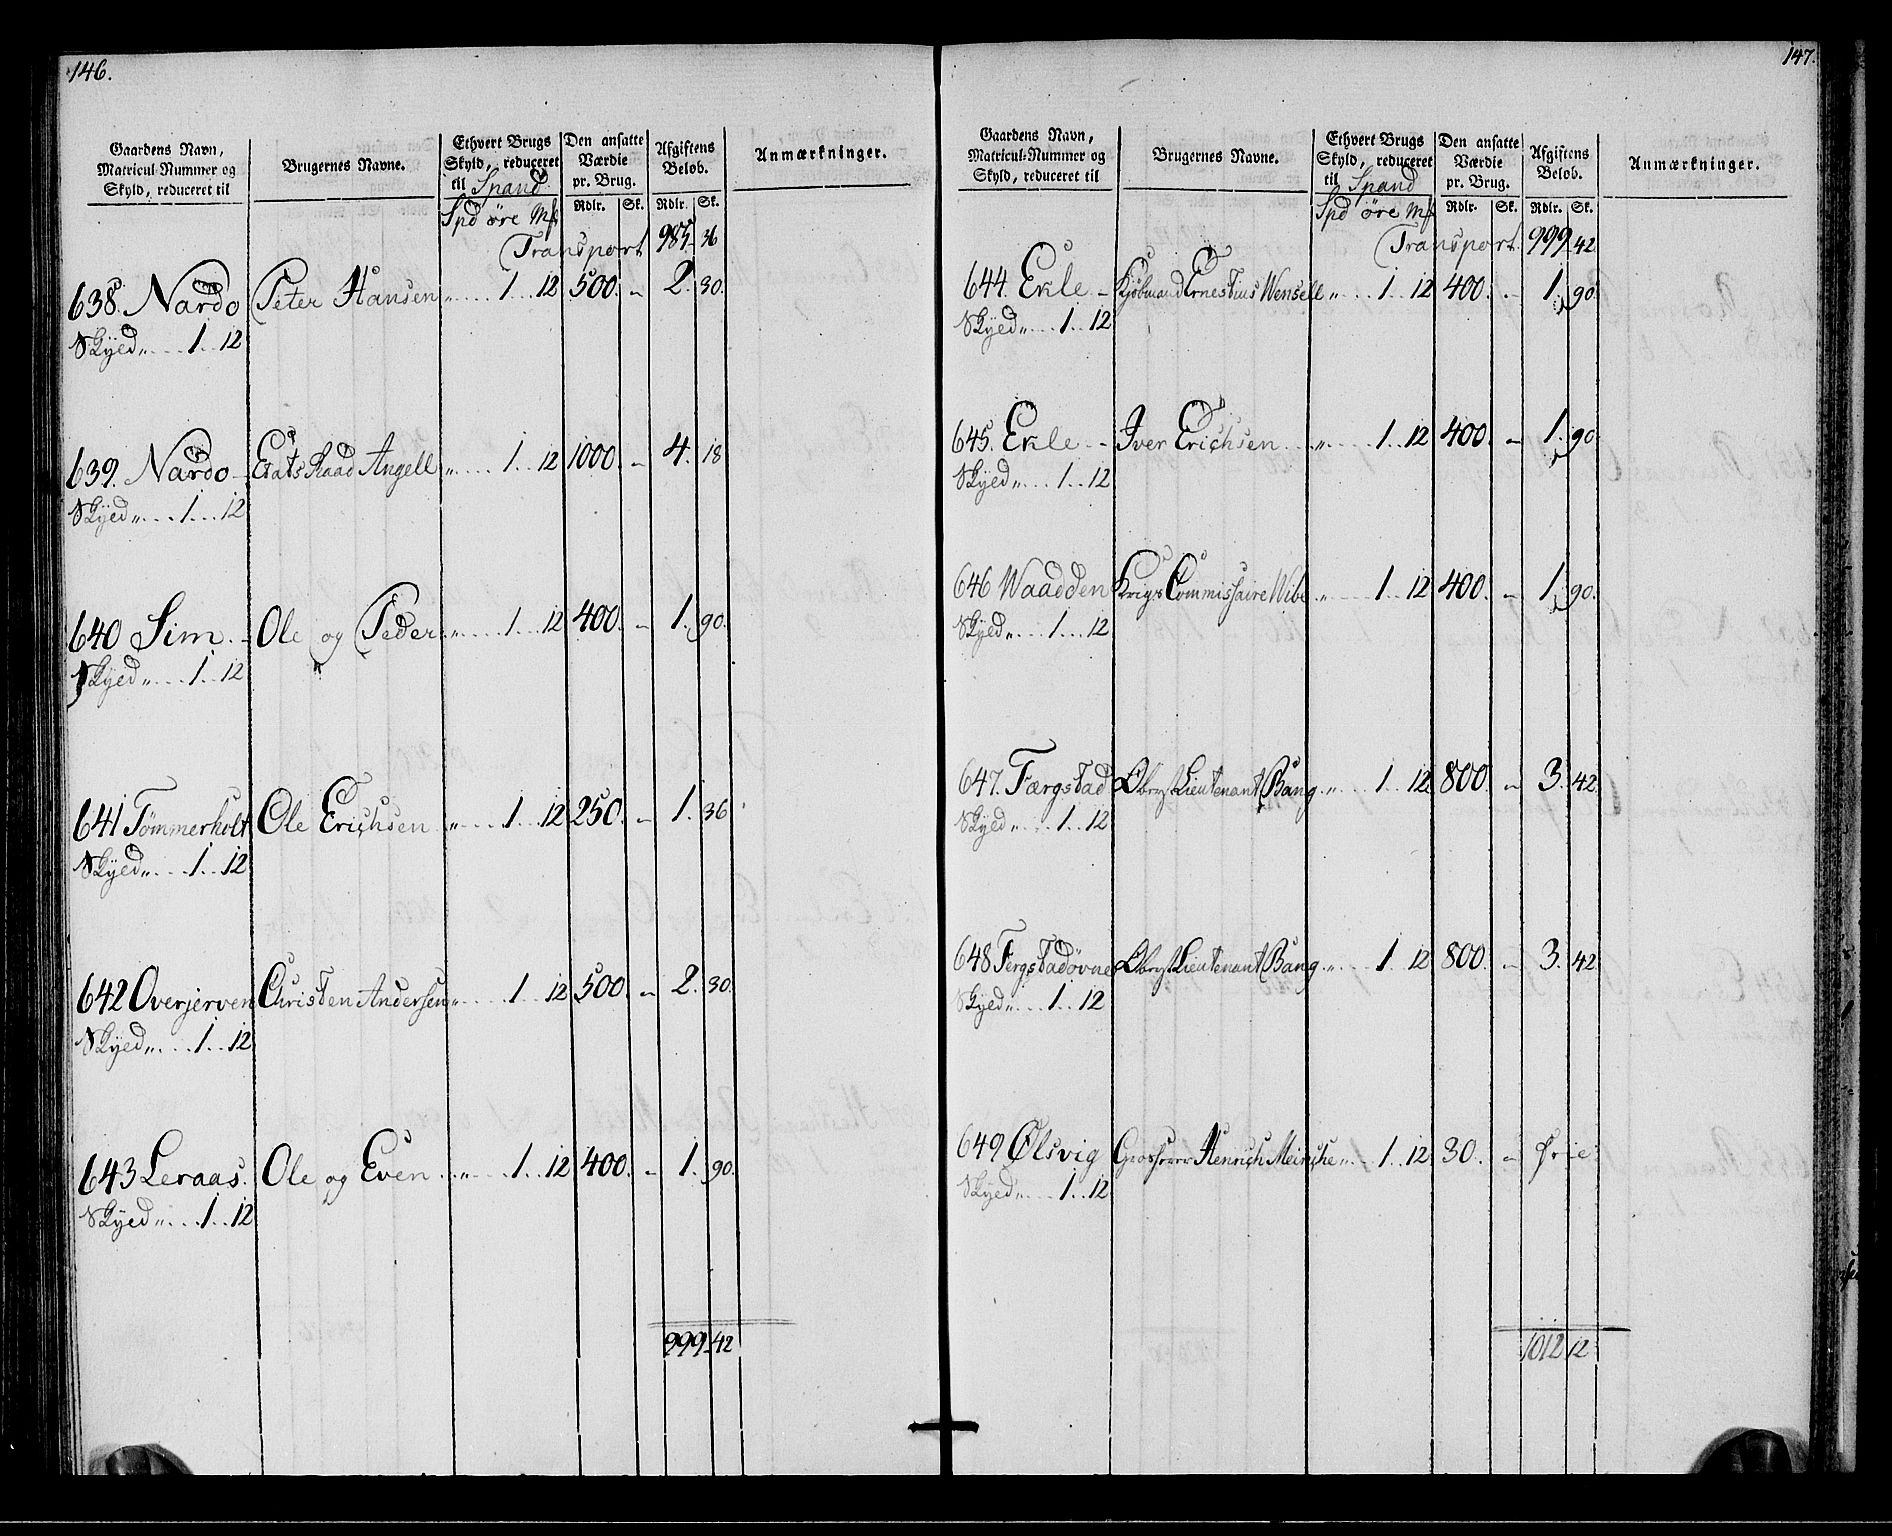 146.
Gaardens Navn, Matricul-Nummer og Skyld, reduceret til
Brugernes Navne.
Ethvert Brugs Skyld, reduceret til Spand
Den ansatte Værdie pr. Brug.
Afgiftens Beløb.
Anmærkninger.
Spd øre Mk
Rdlr. Sk. Rdlr. Sk.
Transport 985 36
638. Nardo Peter Hansen „ 1 12 500. „ 2. 30.
Skyed „ 1 12
639. Nardo Etats Raad Angell „ 1 12 1000. „ 4. 18
Skyed „ 1 12
640 Sim Ole og Peder „ 1 12 400. „ 1. 90.
Skyed „ 1 12
641 Tømmerholt Ole Erichsen „ 1 12 250. „ 1. 36
Skyed „ 1 12
642 Overjerven Christen Andersen „ 1 12 500. „ 2. 30.
Skyed „ 1 12
643 Leraas. Ole og Even „ 1 12 400. „ 1. 90.
Skyed „ 1 12
999 42
147.
Gaardens Navn, Matricul-Nummer og Skyld, reduceret til
Brugernes Navne.
Ethvert Brugs Skyld, reduceret til Spand
Den ansatte Værdie pr. Brug.
Afgiftens Beløb.
Anmærkninger.
Spd øre Mk
Rdlr. Sk. Rdlr. Sk.
Transport 999 42
644. Ekle Kjøbmand Ernestius Wensell „ 1 12 400. „ 1. 90
Skyed „ 1 12
645. Ekle Iver Erichsen „ 1 12 400. „ 1. 90
Skyed „ 1 12
646 Waadden Krigs Commissaire Wibe „ 1 12 400. „ 1. 90.
Skyed „ 1 12
647. Færgstad Oberst Lieutenant Bang „ 1 12 800. „ 3. 42
Skyed „ 1 12
648 Fergstadøvne Oberst Lieutenant Bang „ 1 12 800. „ 3. 42
Skyed „ 1 12
649 Ølsvig Grosserer Henrich Meincke „ 1 12 30. „ Frie
Skyed „ 1 12
1012 12